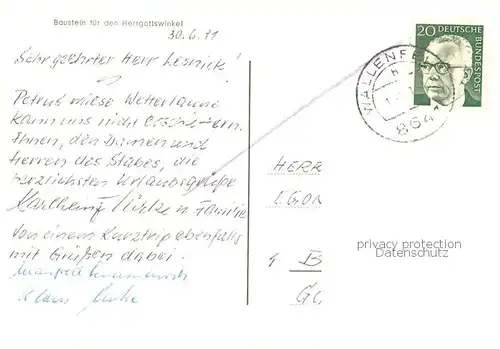 Baustein für den Herrgottswinkel
30.6.71
Sehr geehrter Herr Lesnick!
Petrus' miese Wetterlaune
kann uns nicht erschüttern.
Ihnen, den Damen und
Herren des Stabes, die
herzlichsten Urlaubsgrüße
Karlheinz u. Familie
Von einem Kurztrip ebenfalls
mit Grüßen dabei.
Klaus
20 DEUTSCHE BUNDESPOST
WALLENFELS
864
HERR
EGON
privacy protection
Datenschutz